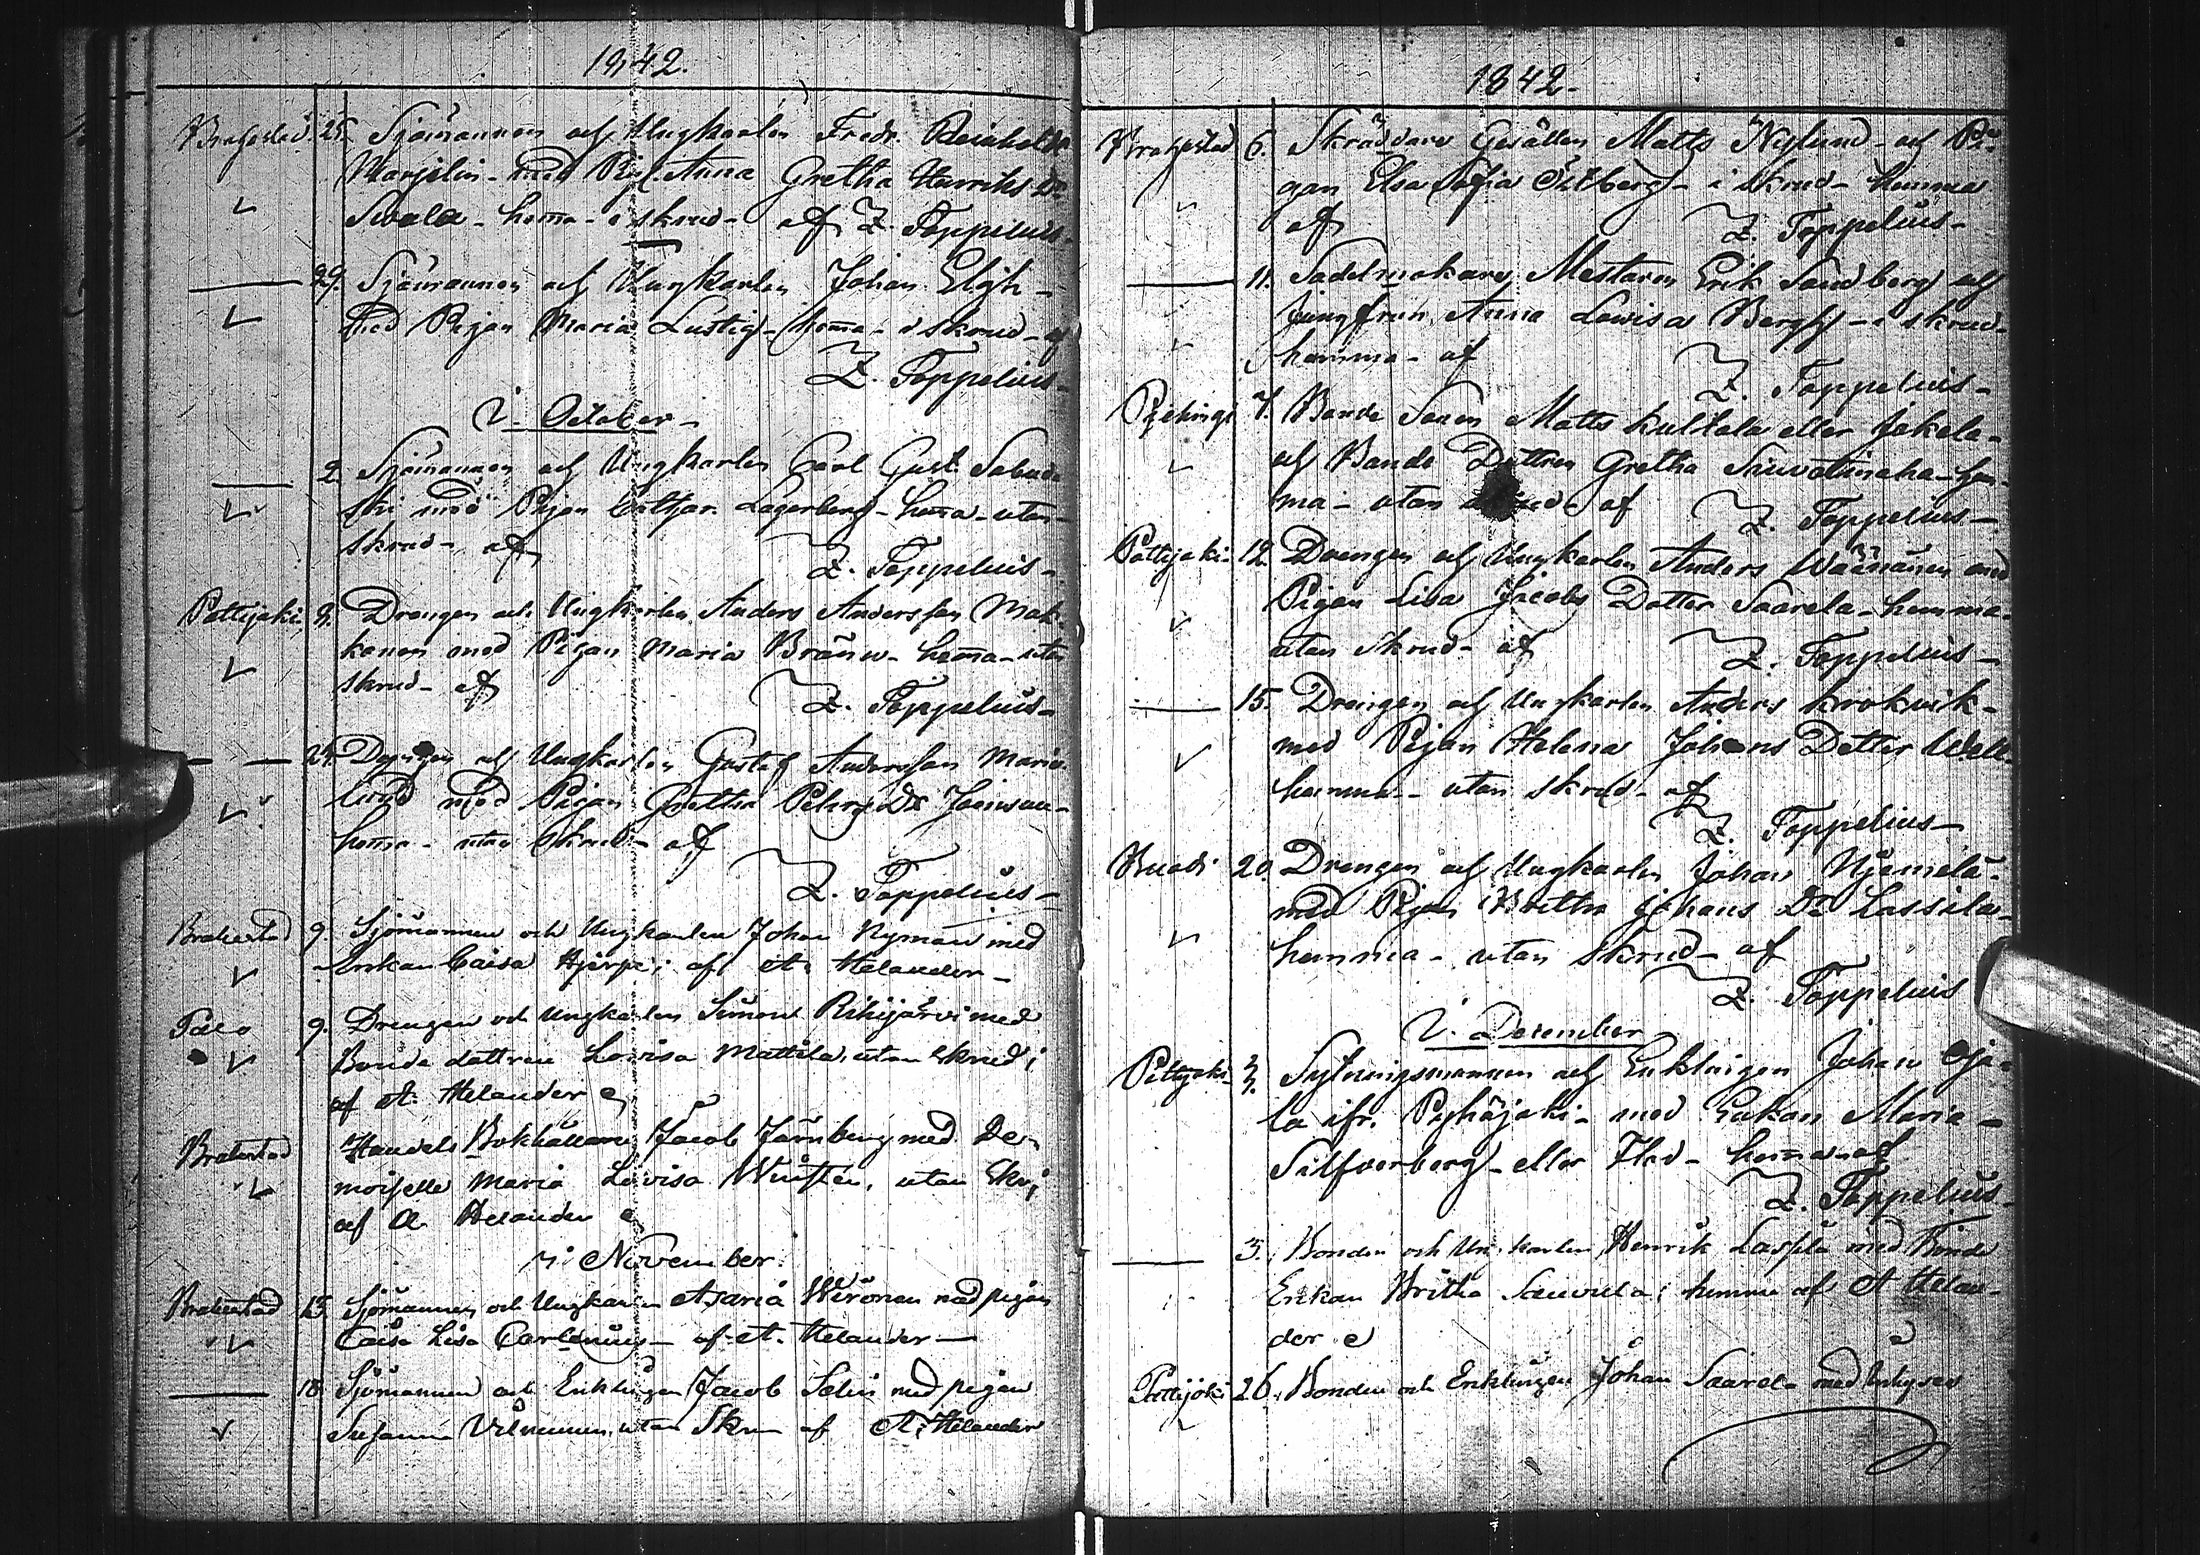 1842.
Brahestad. 25. Sjömannen och Ungkarlen Fredr. Reinholdt
Marjelin - med Pig. Anna Gretha Henriks Dr
Svala - hema - i skrud - af Z. Toppelius -
29. Sjömannen och Ungkarlen Johan Eligh -
med Pigan Maria Lustig - hema - i skrud - af
Z. Toppelius -
i October -
2. Sjömannen och Ungkarlen Carl Gust.
ski med Pigan Cathar. Lagerberg - hema - utan
skrud - af
Z. Toppelius -
Pattijoki, 8. Drengen och Ungkarlen Anders Andersson Mak-
konen med Pigan Maria Bränn - hema - utan
skrud - af
Z. Toppelius -
24. Drengen och Ungkarlen Gustaf Andersson
med Pigan Gretha Pehrs Dr
hema - utan skrud - af
Z. Toppelius -
Brahestad 9. Sjömannen och Ungkarlen Johan Nyman med
Enkan Caisa Hjerpe; af A. Helander -
Salo 9. Drengen och Ungkarlen Simon Rihijärvi med
Bonde dottren Lovisa Mattila, utan skrud;
af A. Helander
Brahestad Handels Bokhållaren Jacob Järnberg med De-
moiselle Maria Lovisa utan Skr;
af A. Helander
i November.
Brahestad 13. Sjömannen och Ungkarlen Asaria Wirönen med pigan
Caisa Lisa Carlenius - af A. Helander -
18. Sjömannen och Enklingen Jacob Salin med pigan
Susanna utan Skru af A. Helander
1842 -
Brahestad 6. Skräddare Gesällen Matts Nylund - och Pi-
gan Elsa Sofia Östberg - i skrud - hemma
af Z. Toppelius -
11. Sadelmakare Mestaren Erik Sandberg och
Jungfrun Anna Lovisa Bergh - i skrud -
hemma - af Z. Toppelius -
Pjehingi 7. Bonde Sonen Matts Kultala eller Jokela -
och Bonde Dottren Gretha - hem-
ma - utan skrud - af Z. Toppelius -
Pattijoki - 12. Drengen och Ungkarlen Anders Wäänänen med
Pigan Lisa Jacobs Dotter Saarela - hemma -
utan skrud - af Z. Toppelius -
15. Drengen och Ungkarlen Anders Krokvik -
med Pigan Helena Johans Dotter
hemma - utan skrud - af
Z. Toppelius -
20. Drengen och Ungkarlen Johan Njemelä -
med Pigan Britha Johans Dr Lassila -
hemma - utan skrud - af
Z. Toppelius
i December
Pattijoki - Sytningsmannen och Enklingen Johan Oja-
la ifr. Pyhäjoki - med Enkan Maria -
Silfverberg - eller Flod - hema - af
Z. Toppelius -
3. Bonden och Ungkarlen Henrik Lassila med Bonde
Enkan Britha hemma af A Helan-
der
Pattijoki 26. Bonden och Enklingen Johan Saarela med